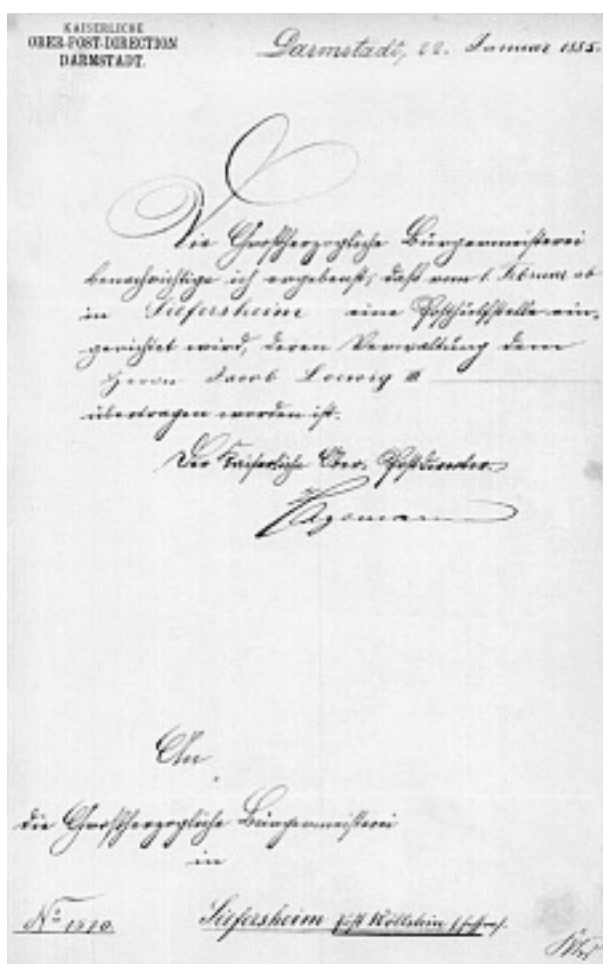 KAISERLICHE
OBER-POST-DIRECTION
DARMSTADT.
Darmstadt, 22. Januar 1885.
Die Großherzogliche Bürgermeisterei
benachrichtige ich ergebenst, daß vom 1. Februar ab
in Siefersheim eine Posthülfstelle ein-
gerichtet wird, deren Verwaltung dem
Herrn Jacob Loewig III
übertragen worden ist.
Der Kaiserliche Ober-Postdirector
An
die Großherzogliche Bürgermeisterei
in
No 1510.
Siefersheim Post Wöllstein